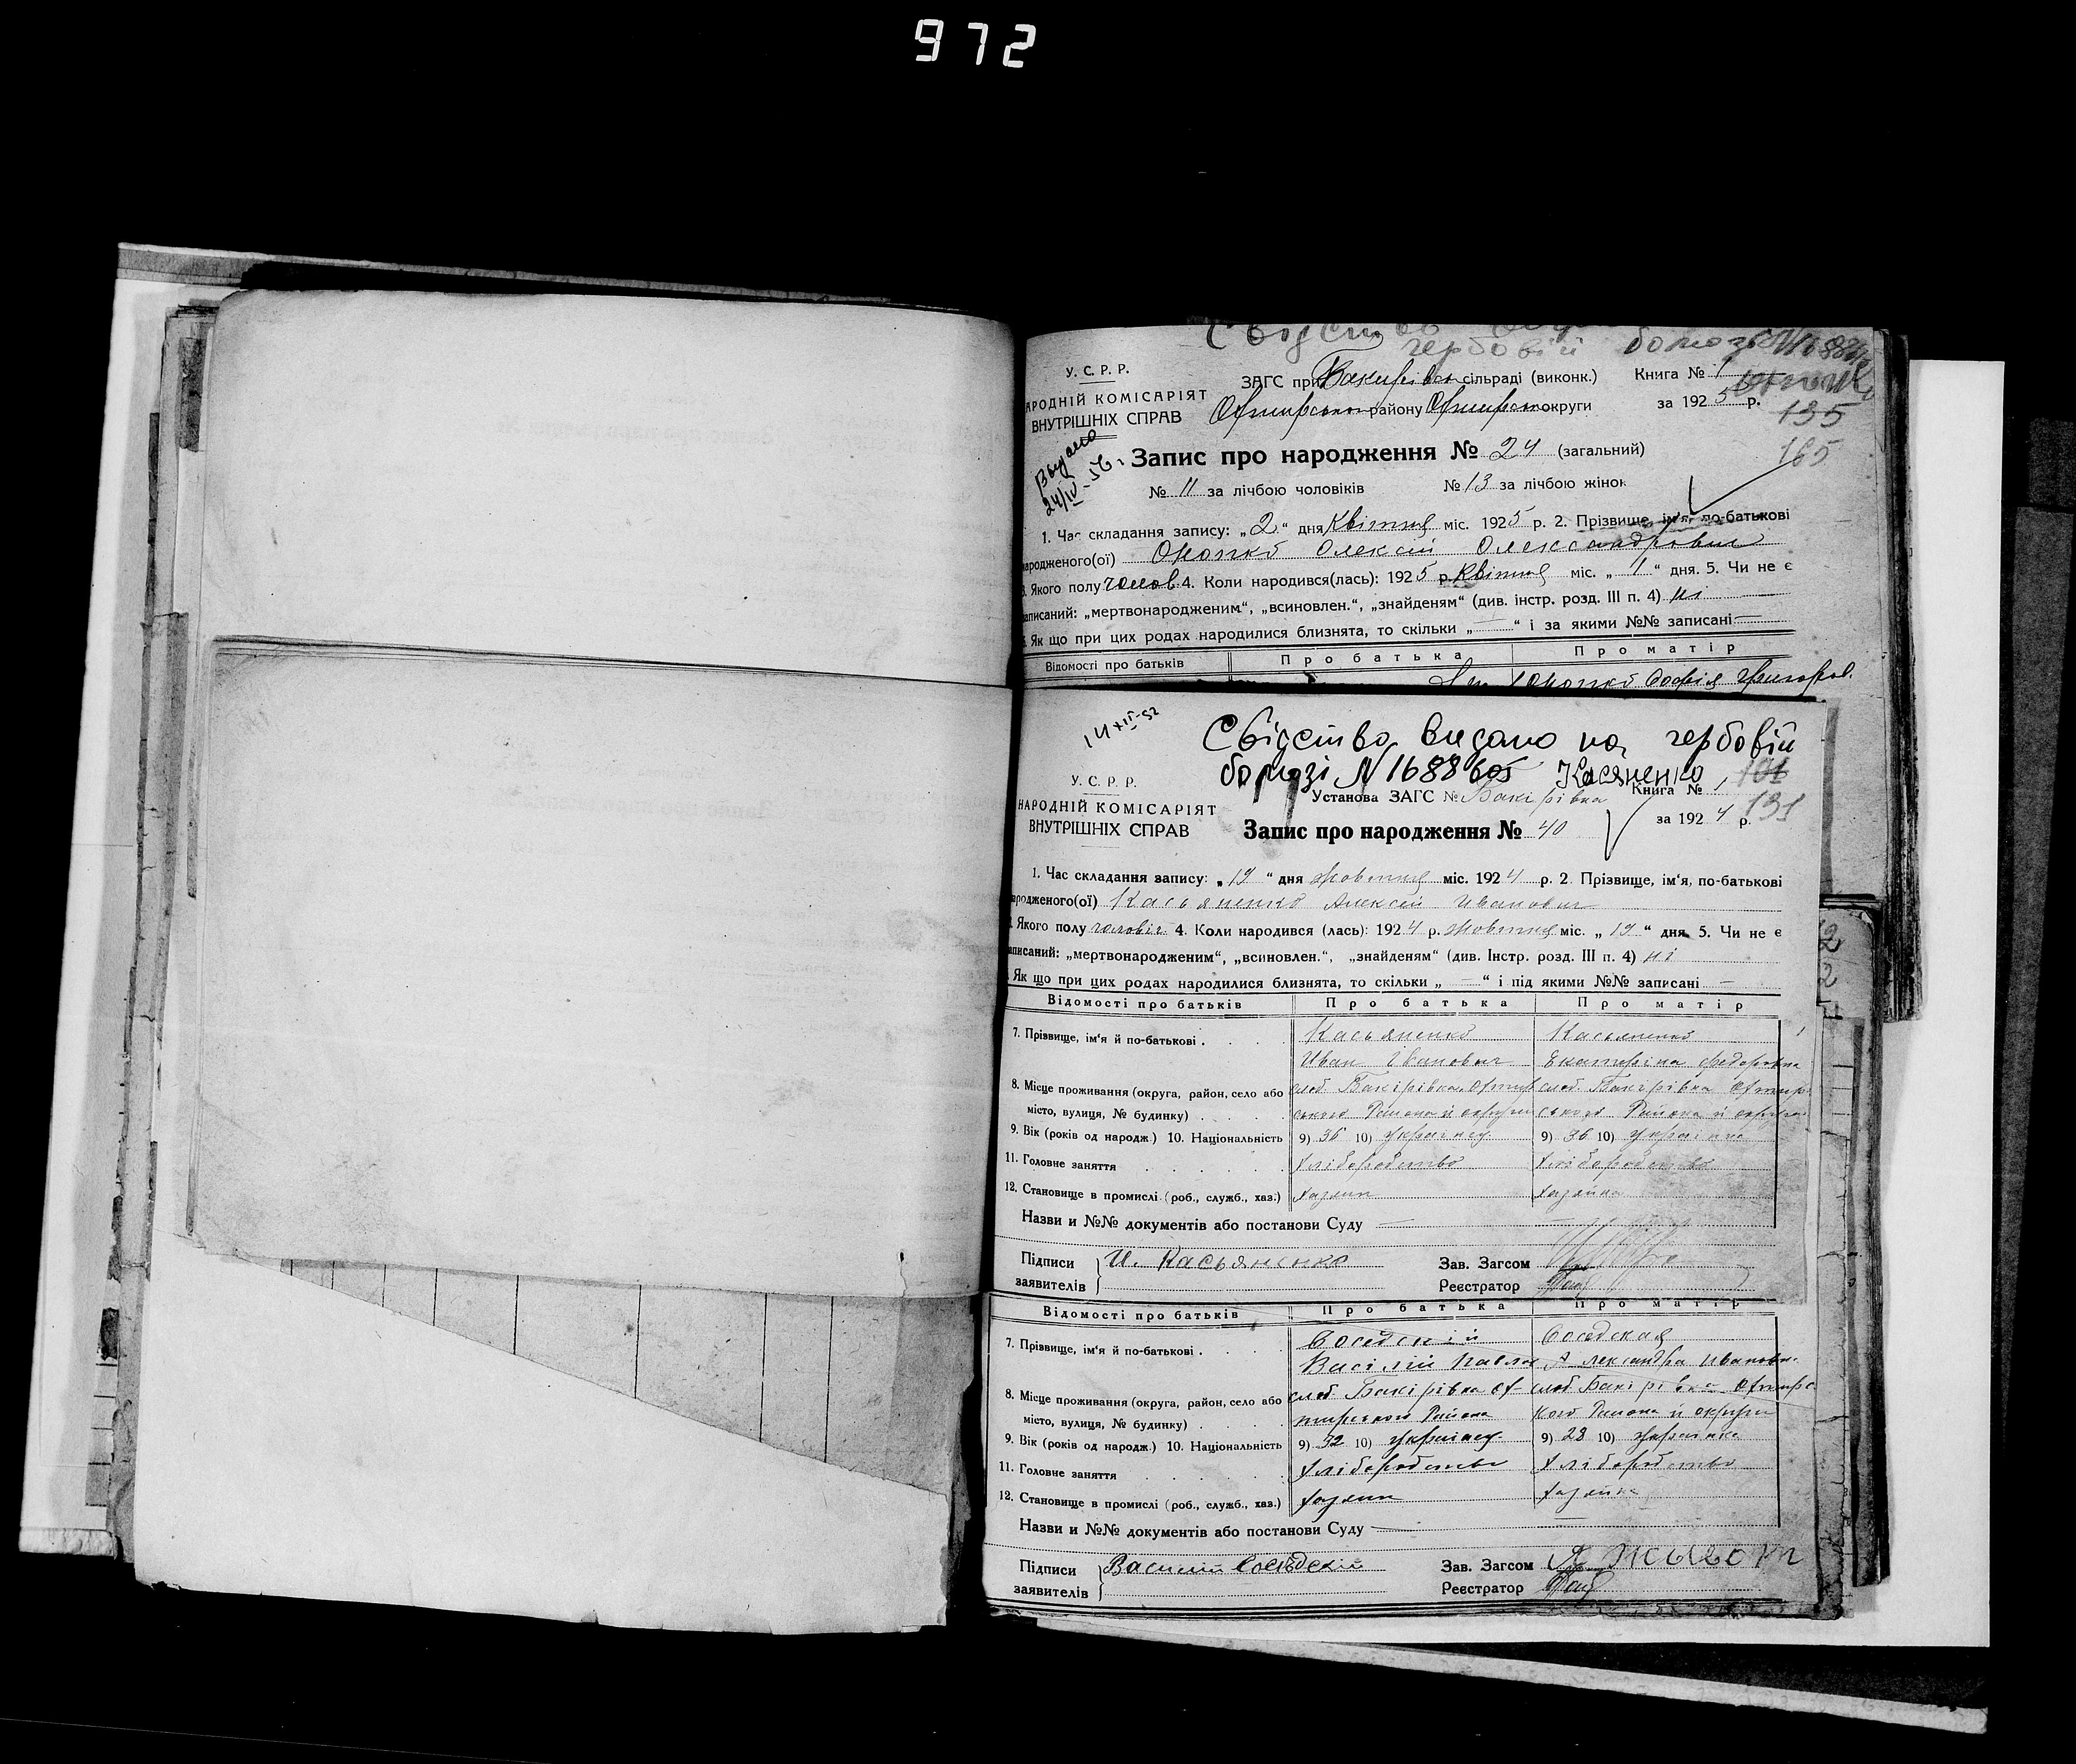 972
У. С. Р. Р.
АРОДНІЙ КОМІСАРІЯТ
ВНУТРІШНІХ СПРАВ
чербовій
ЗАГС при Бакирівськ сільраді (виконк.)
Книга № 1
Охтирському району Охтирсько округи
за 1925 р.
135
165
Выдано
24/IV-56 г.
Запис про народження № 24 (загальний)
№ 11 за лічбою чоловіків № 13 за лічбою жінок
1. Час складання запису: „2“ дня Квітня міс. 1925 р. 2. Прізвище, ім'я, по-батькові
народженого(ої) Олексій Олександрович
3. Якого полу чолов. 4. Коли народився(лась): 1925 р. Квітня міс. „1“ дня. 5. Чи не є
записаний: „мертвонародженим“, „всиновлен.“, „знайденям“ (див. інстр. розд. III п. 4) ні
Як що при цих родах народилися близнята, то скільки „—“ і за якими №№ записані —
Відомості про батьків Про батька Про матір
Софія Григоров.
14 XII-52
Свідотво видано на чербовій
бомазі N 1688 Касяненко
У. С. Р. Р.
НАРОДНІЙ КОМІСАРІЯТ
ВНУТРІШНІХ СПРАВ
Установа ЗАГС № Бакірівка
Книга № 1
131
Запис про народження № 40
за 1924 р.
1. Час складання запису: „19“ дня жовтня міс. 1924 р. 2. Прізвище, ім'я, по-батькові
народженого(ої) Касьяненко Алексей Иванович
Якого полу чоловіч. 4. Коли народився (лась): 1924 р. жовтня міс. „19“ дня. 5. Чи не є
записаний: „мертвонародженим“, „всиновлен.“, „знайденям“ (див. Інстр. розд. III п. 4) ні
Як що при цих родах народилися близнята, то скільки „—“ і під якими №№ записані —
Відомості про батьків Про батька Про матір
7. Прізвище, ім'я й по-батькові . Касьяненко Касьяненко
Иван Іванович Екатеріна Федоровна
8. Місце проживання (округа, район, село або слоб. Бакірівка Охтир слоб. Бакірівка Охтир
місто, вулиця, № будинку) ського Района й округи ського Района й округи
9. Вік (років од народж.) 10. Національність 9) 36 10) Українец 9) 36 10) Українка
11. Головне заняття Хліборобство Хліборобство
12. Становище в промислі (роб., служб., хаз.) Хазяин Хазяйка
Назви и №№ документів або постанови Суду —
Підписи заявителів И. Касьяненко
Зав. Загсом
Реєстратор
Відомості про батьків Про батька Про матір
7. Прізвище, ім'я й по-батькові . Соседскій Соседская
Васілий Павлов Александра Ивановн.
8. Місце проживання (округа, район, село або слоб. Бакірівка Ох- слоб. Бакірівка Охтирс
місто, вулиця, № будинку) тирського Района кого Района й округи
9. Вік (років од народж.) 10. Національність 9) 32 10) Українец 9) 28 10) Українка
11. Головне заняття Хліборобство Хліборобство
12. Становище в промислі (роб., служб., хаз.) Хазяин Хазяйка
Назви и №№ документів або постанови Суду —
Підписи заявителів Василий Соседский
Зав. Загсом
Реєстратор